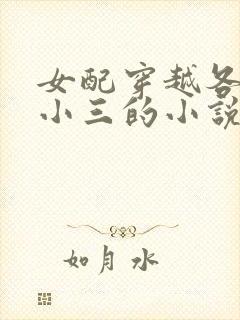 女配穿越各
小三的小説
如月水